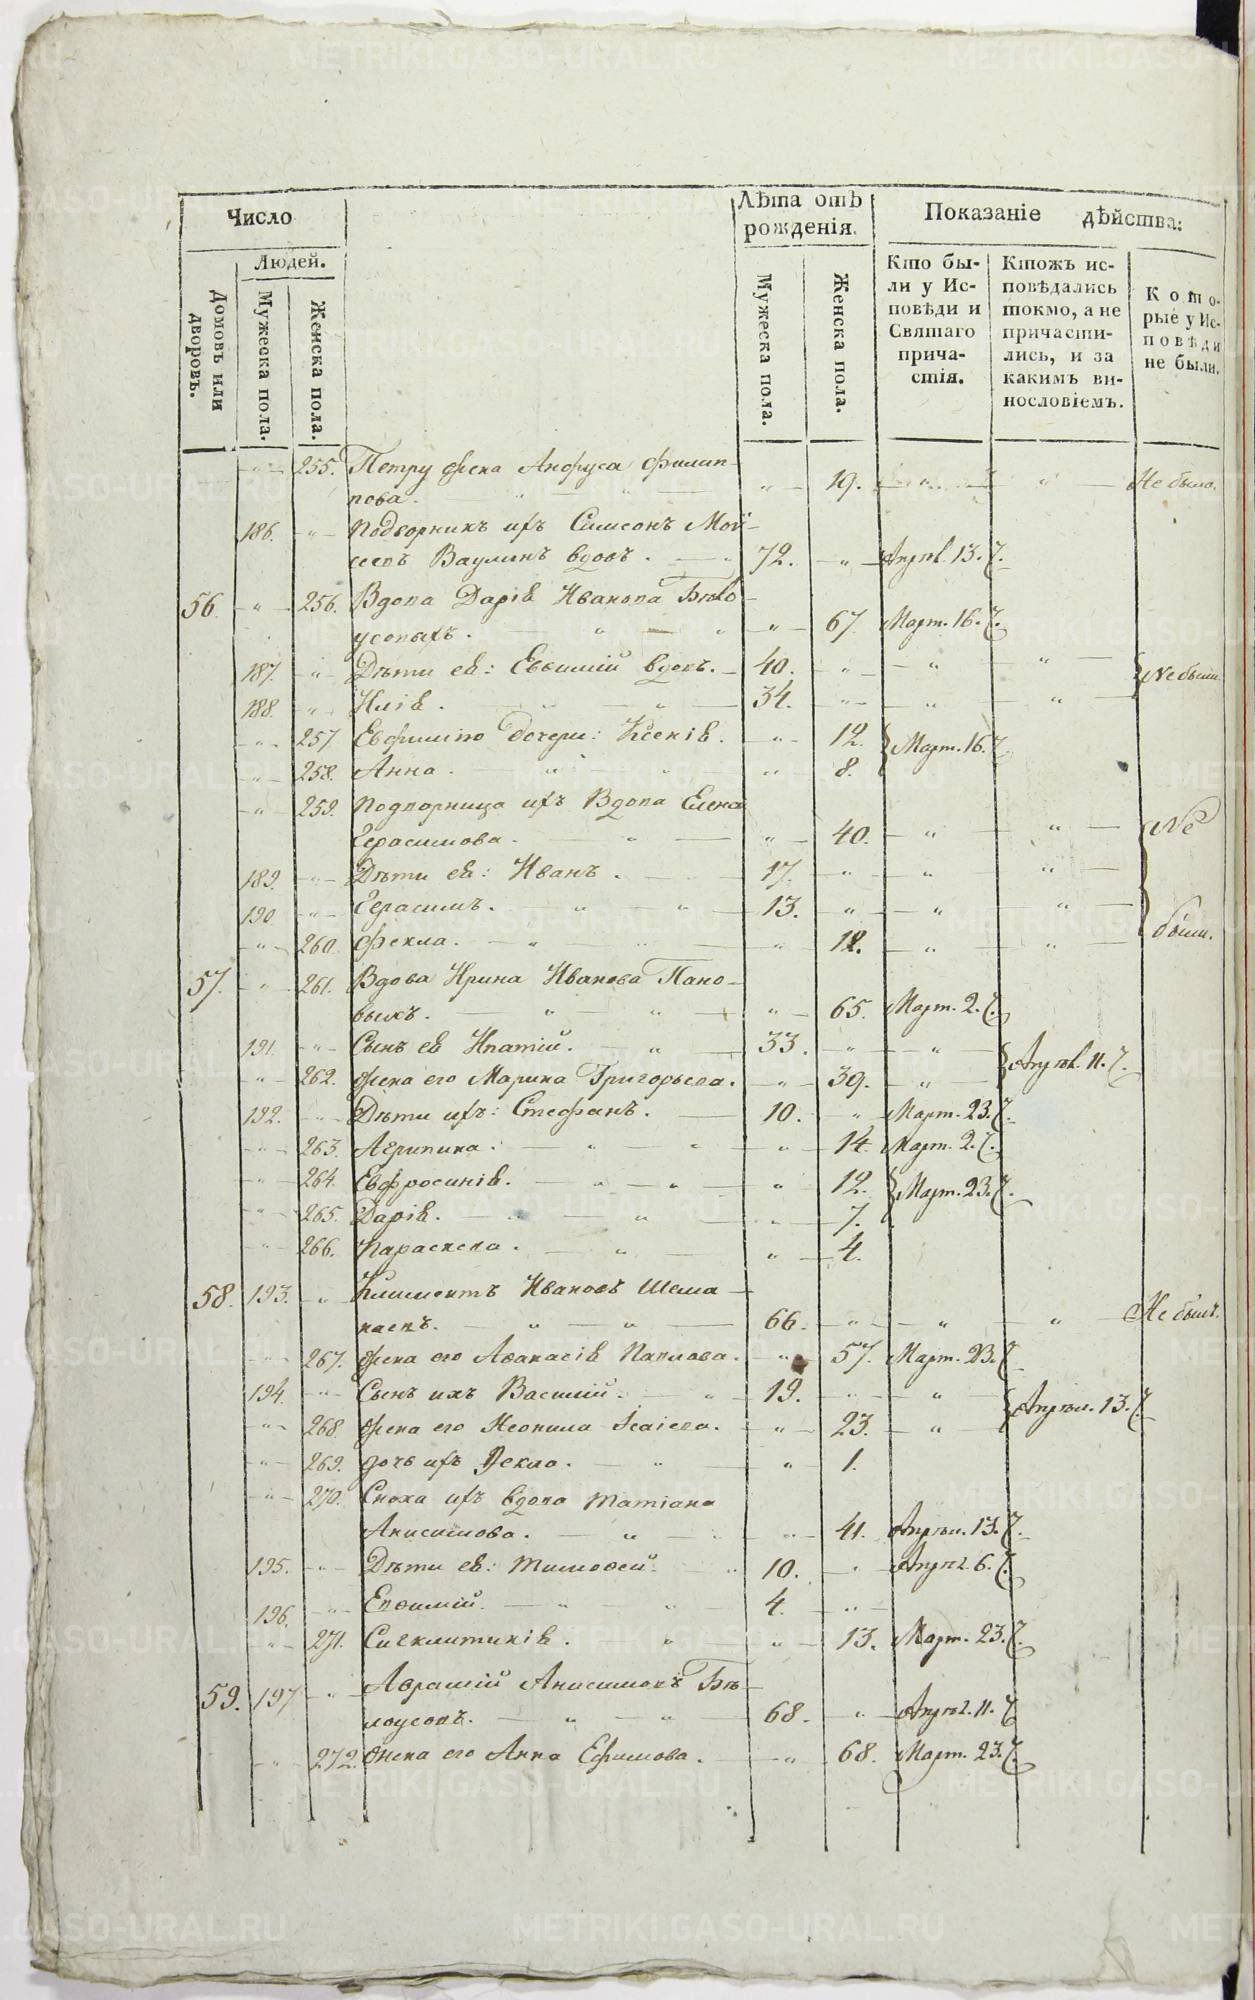 Число
Лѣта отъ рожденія.
Показаніе дѣйства:
Людей.
Домовъ или дворовъ.
Мужеска пола.
Женска пола.
Мужеска пола.
Женска пола.
Кто бы-
ли у Ис-
повѣди и
Святаго
прича-
стія.
Ктожъ ис-
повѣдались
токмо, а не
причасти-
лись, и за
какимъ ви-
нословіемъ.
Кото-
рые у Ис-
повѣди
не были.
255. Петру жена Анфуса Филип-
пова. 19. Не была.
186. Подворникъ ихъ Симеонъ Мой-
сеевъ Ваулинъ вдовъ. 72. Апрѣл. 13.
56. 256. Вдова Дарія Иванова Бѣло-
усовыхъ. 67. Март. 16.
187. Дѣти ея: Евфимій вдовъ. 40. Не были.
188. Илія. 34.
257. Евфимію дочери: Ксенія. 12. Март. 16.
258. Анна. 8.
259. Подворница ихъ Вдова Елена
Герасимова. 40. Не
189. Дѣти ея: Иванъ. 17.
190. Герасимъ. 13.
260. Фекла. 12. были.
57. 261. Вдова Ирина Иванова Пано-
выхъ. 65. Март. 2.
191. Сынъ ея Ипатій. 33. Апрѣл. 11.
262. Жена его Марина Григорьева. 39.
192. Дѣти ихъ: Стефанъ. 10. Март. 23.
263. Агрипина. 14. Март. 2.
264. Евфросинія. 12. Март. 23.
265. Дарія. 7.
266. Параскева. 4.
58. 193. Климентъ Ивановъ Шема-
наевъ. 66. Не былъ.
267. Жена его Афанасія Павлова. 57. Март. 23.
194. Сынъ ихъ Василій. 19. Апрѣл. 13.
268. Жена его Неонила Исаіева. 23.
269. Дочь ихъ Фекла. 1.
270. Сноха ихъ вдова Татіана
Анисимова. 41. Апрѣл. 13.
195. Дѣти ея: Тимофей. 10. Апрѣл. 6.
196. Евфимій. 4.
271. Сигклитикія. 13. Март. 23.
59. 197. Аврамій Анисимовъ Бѣ-
лоусовъ. 68. Апрѣл. 11.
272. Жена его Анна Ефимова. 68. Март. 23.
METRIKI.GASO-URAL.RU